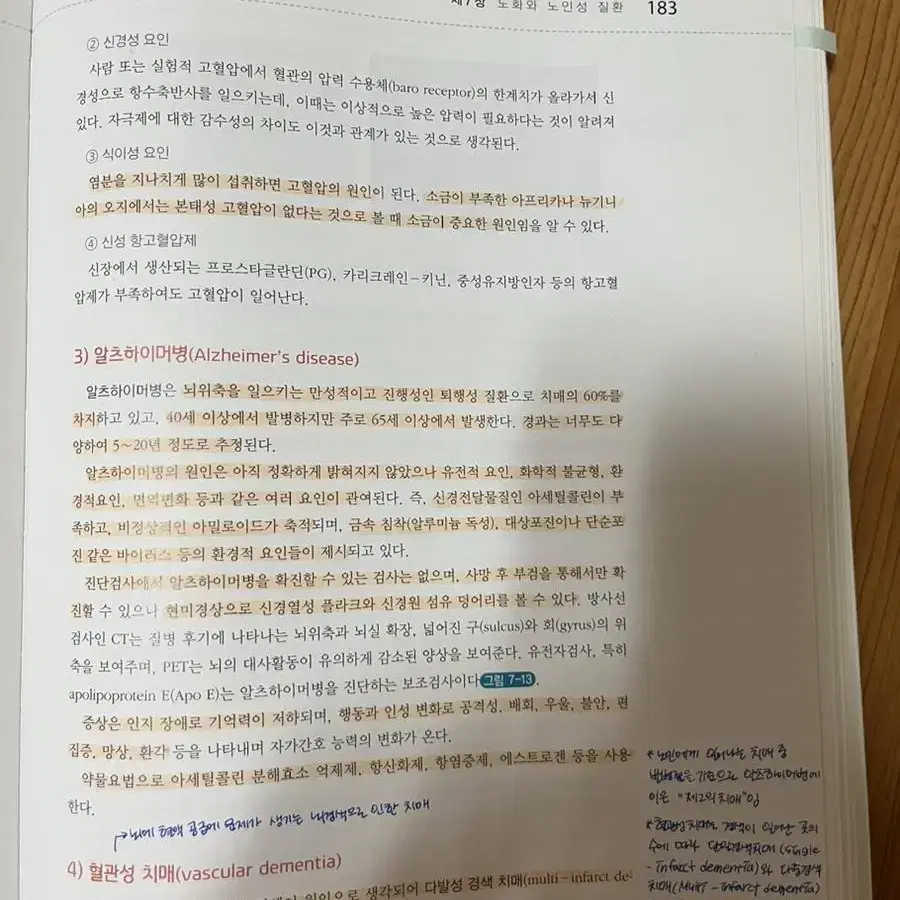 제7장 노화와 노인성 질환 183
② 신경성 요인
사람 또는 실험적 고혈압에서 혈관의 압력 수용체(baro receptor)의 한계치가 올라가서 신
경성으로 항수축반사를 일으키는데, 이때는 이상적으로 높은 압력이 필요하다는 것이 알려져
있다. 자극제에 대한 감수성의 차이도 이것과 관계가 있는 것으로 생각된다.
③ 식이성 요인
염분을 지나치게 많이 섭취하면 고혈압의 원인이 된다. 소금이 부족한 아프리카나 뉴기니
아의 오지에서는 본태성 고혈압이 없다는 것으로 볼 때 소금이 중요한 원인임을 알 수 있다.
④ 신성 항고혈압제
신장에서 생산되는 프로스타글란딘(PG), 카리크레인-키닌, 중성유지방인자 등의 항고혈
압제가 부족하여도 고혈압이 일어난다.
3) 알츠하이머병(Alzheimer's disease)
알츠하이머병은 뇌위축을 일으키는 만성적이고 진행성인 퇴행성 질환으로 치매의 60%를
차지하고 있고, 40세 이상에서 발병하지만 주로 65세 이상에서 발생한다. 경과는 너무도 다
양하여 5~20년 정도로 추정된다.
알츠하이머병의 원인은 아직 정확하게 밝혀지지 않았으나 유전적 요인, 화학적 불균형, 환
경적요인, 면역변화 등과 같은 여러 요인이 관여된다. 즉, 신경전달물질인 아세틸콜린이 부
족하고, 비정상적인 아밀로이드가 축적되며, 금속 침착(알루미늄 독성), 대상포진이나 단순포
진 같은 바이러스 등의 환경적 요인들이 제시되고 있다.
진단검사에서 알츠하이머병을 확진할 수 있는 검사는 없으며, 사망 후 부검을 통해서만 확
진할 수 있으나 현미경상으로 신경열성 플라크와 신경원 섬유 덩어리를 볼 수 있다. 방사선
검사인 CT는 질병 후기에 나타나는 뇌위축과 뇌실 확장, 넓어진 구(sulcus)와 회(gyrus)의 위
축을 보여주며, PET는 뇌의 대사활동이 유의하게 감소된 양상을 보여준다. 유전자검사, 특히
apolipoprotein E(Apo E)는 알츠하이머병을 진단하는 보조검사이다 그림 7-13.
증상은 인지 장애로 기억력이 저하되며, 행동과 인성 변화로 공격성, 배회, 우울, 불안, 편
집증, 망상, 환각 등을 나타내며 자가간호 능력의 변화가 온다.
약물요법으로 아세틸콜린 분해효소 억제제, 항산화제, 항염증제, 에스트로겐 등을 사용
한다.
뇌에 혈액 공급에 문제가 생기는 뇌경색으로 인한 치매
4) 혈관성 치매(vascular dementia)
원인으로 생각되어 다발성 경색 치매(multi-infarct de-
* 노인에게 일어나는 치매 중
기준으로 알츠하이머병에
이은 "제2의 치매"임
* 혈관성치매는 경색이 일어난 곳의
수에 따라 단일경색치매(single
- infarct dementia)와 다중경색
치매(Multi - infarct dementia)